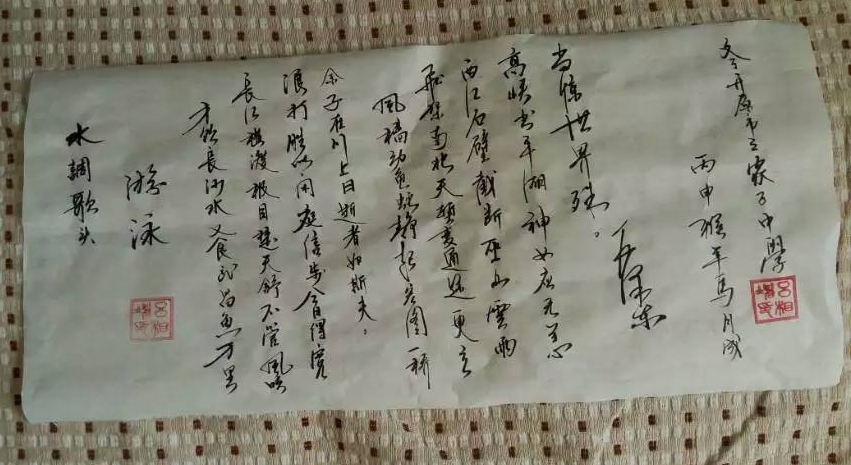 水調歌头
游泳
才饮長沙水又食武昌鱼万里
長江横渡极目楚天舒不管風吹
浪打胜似闲庭信步今日得宽
余子在川上曰逝者如斯夫。
風樯动龟蛇静起宏图一桥
飞架南北天堑变通途更立
西江石壁截断巫山雲雨
高峡出平湖神女应无恙
当惊世界殊。
毛泽东
丙申猴年马月成
开原市 家子中學
吕相